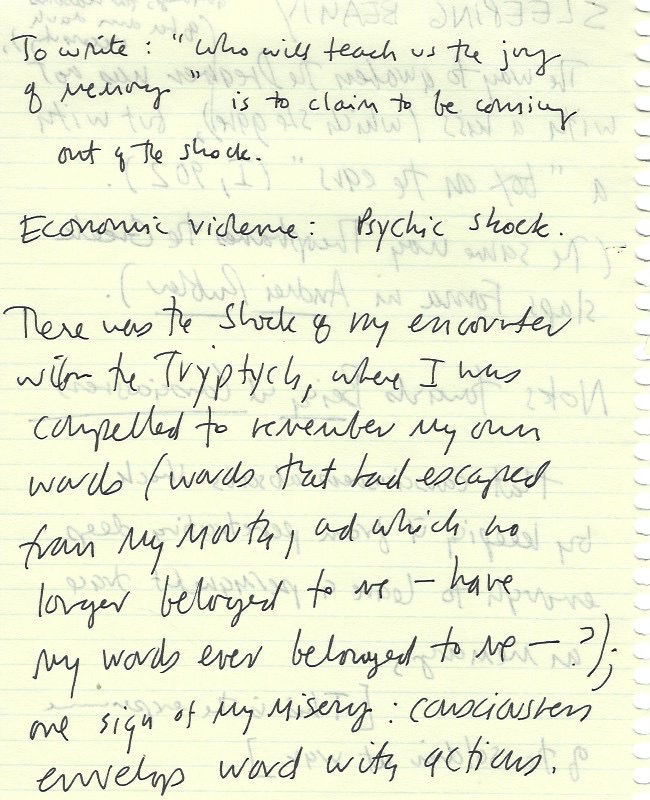 To write: "Who will teach us the joy
of memory" is to claim to be coming
out of the shock.
Economic violence: Psychic shock.
There was the shock of my encounter
with the Tryptych, where I was
compelled to remember my own
words (words that had escaped
from my mouth, and which no
longer belonged to me – have
my words ever belonged to me – ?);
one sign of my misery: consciousness
envelops word with actions.